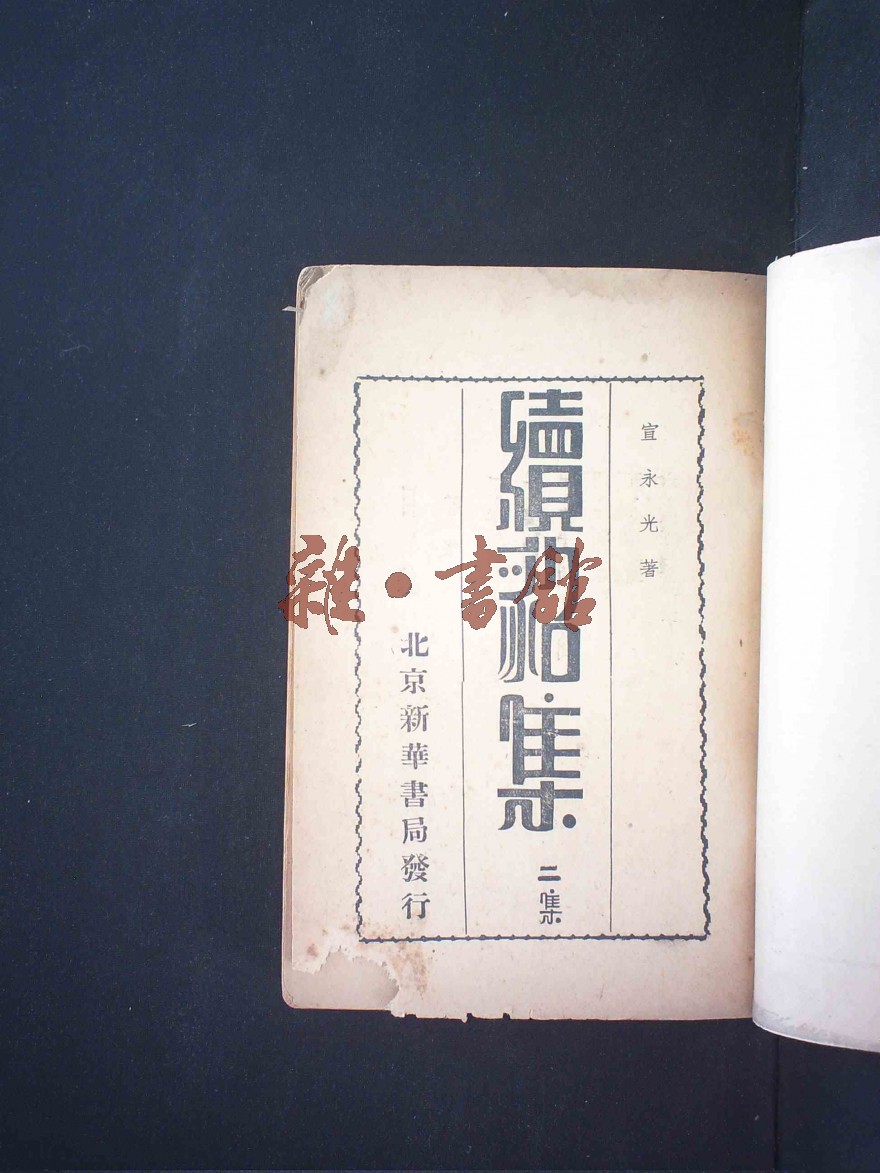 宣永光著
續
集
二集
北京新華書局發行
雜·書館